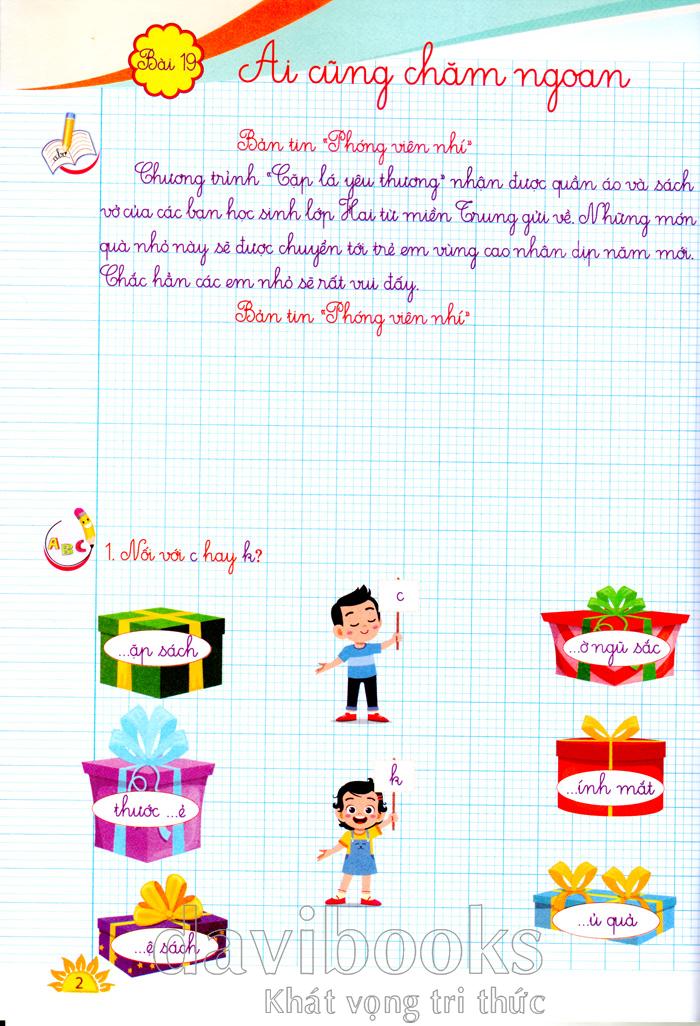 Bài 19
Ai cũng chăm ngoan
abc
Bản tin "Phóng viên nhí"
Chương trình "Cặp lá yêu thương" nhận được quần áo và sách
vở của các bạn học sinh lớp Hai từ miền Trung gửi về. Những món
quà nhỏ này sẽ được chuyển tới trẻ em vùng cao nhân dịp năm mới.
Chắc hẳn các em nhỏ sẽ rất vui đấy.
Bản tin "Phóng viên nhí"
ABC
1. Nối với c hay k?
c
...ặp sách
...ờ ngũ sắc
k
thước ...ẻ
...ính mắt
...ệ sách
...ủ quả
davibooks
Khát vọng tri thức
2